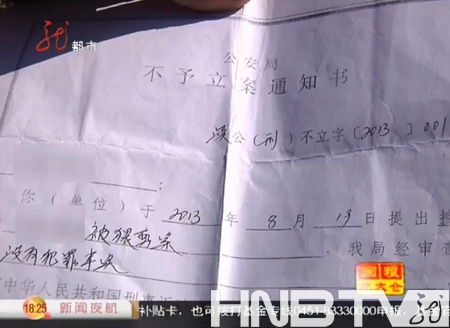 都市
公安局
不予立案通知书
公(刑)不立字[2013]001
:
你(单位)于2013年8月19日提出控
被 案
我局经审查
没有犯罪事
中华人民共和国刑事诉
18:25 新闻夜航 补贴卡,也可拨打基金专线0451-53330000申报。
HNBTV